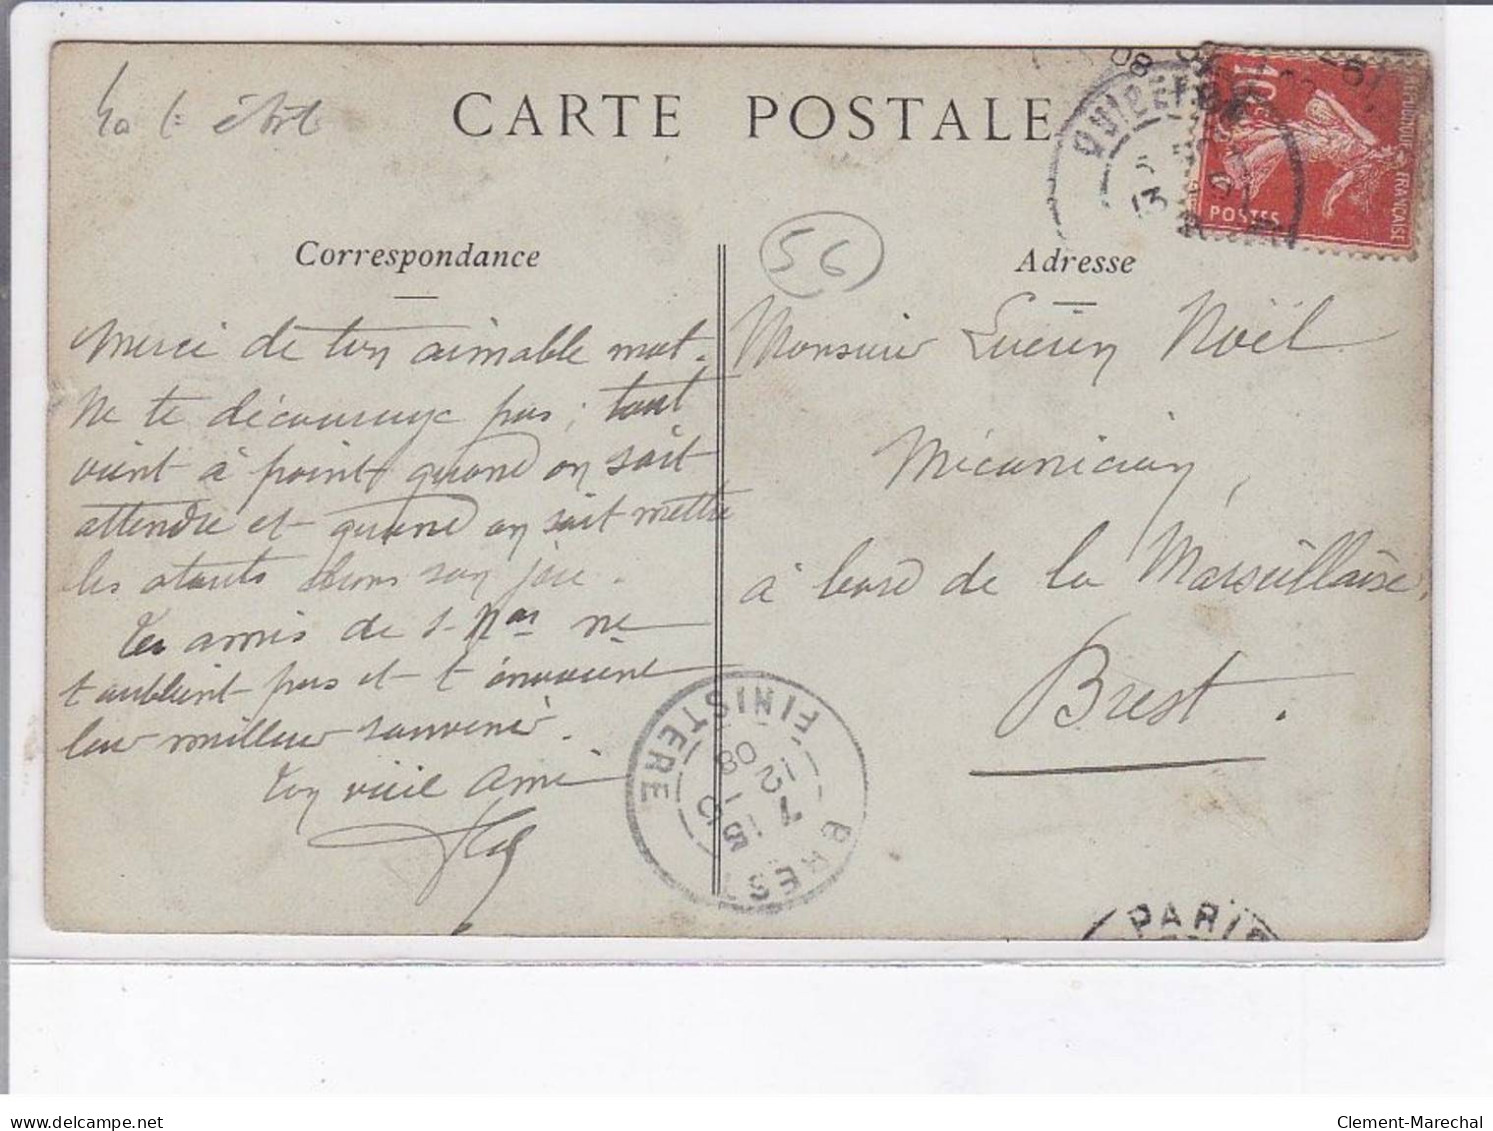 CARTE POSTALE
QUIBERON
13
08
10
REPUBLIQUE FRANÇAISE
POSTES
56
Correspondance
Merci de ton aimable mot.
Ne te décourage pas ; tout
vient à point quand on sait
attendre et quand on sait mettre
les atouts dans son jeu.
Tes amis de ne
t'oublient pas et t'envoient
leur meilleur souvenir.
Ton vieil ami
Adresse
Monsieur Lucien Noël
Mécanicien,
à bord de la Marseillaise,
Brest.
BREST
FINISTERE
7 12
08
PARIS
delcampe.net
Clement-Marechal